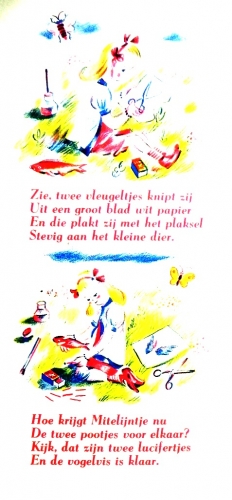 Zie, twee vleugeltjes knipt zij
Uit een groot blad wit papier
En die plakt zij met het plaksel
Stevig aan het kleine dier.
Hoe krijgt Mitelijntje nu
De twee pootjes voor elkaar?
Kijk, dat zijn twee lucifertjes
En de vogelvis is klaar.